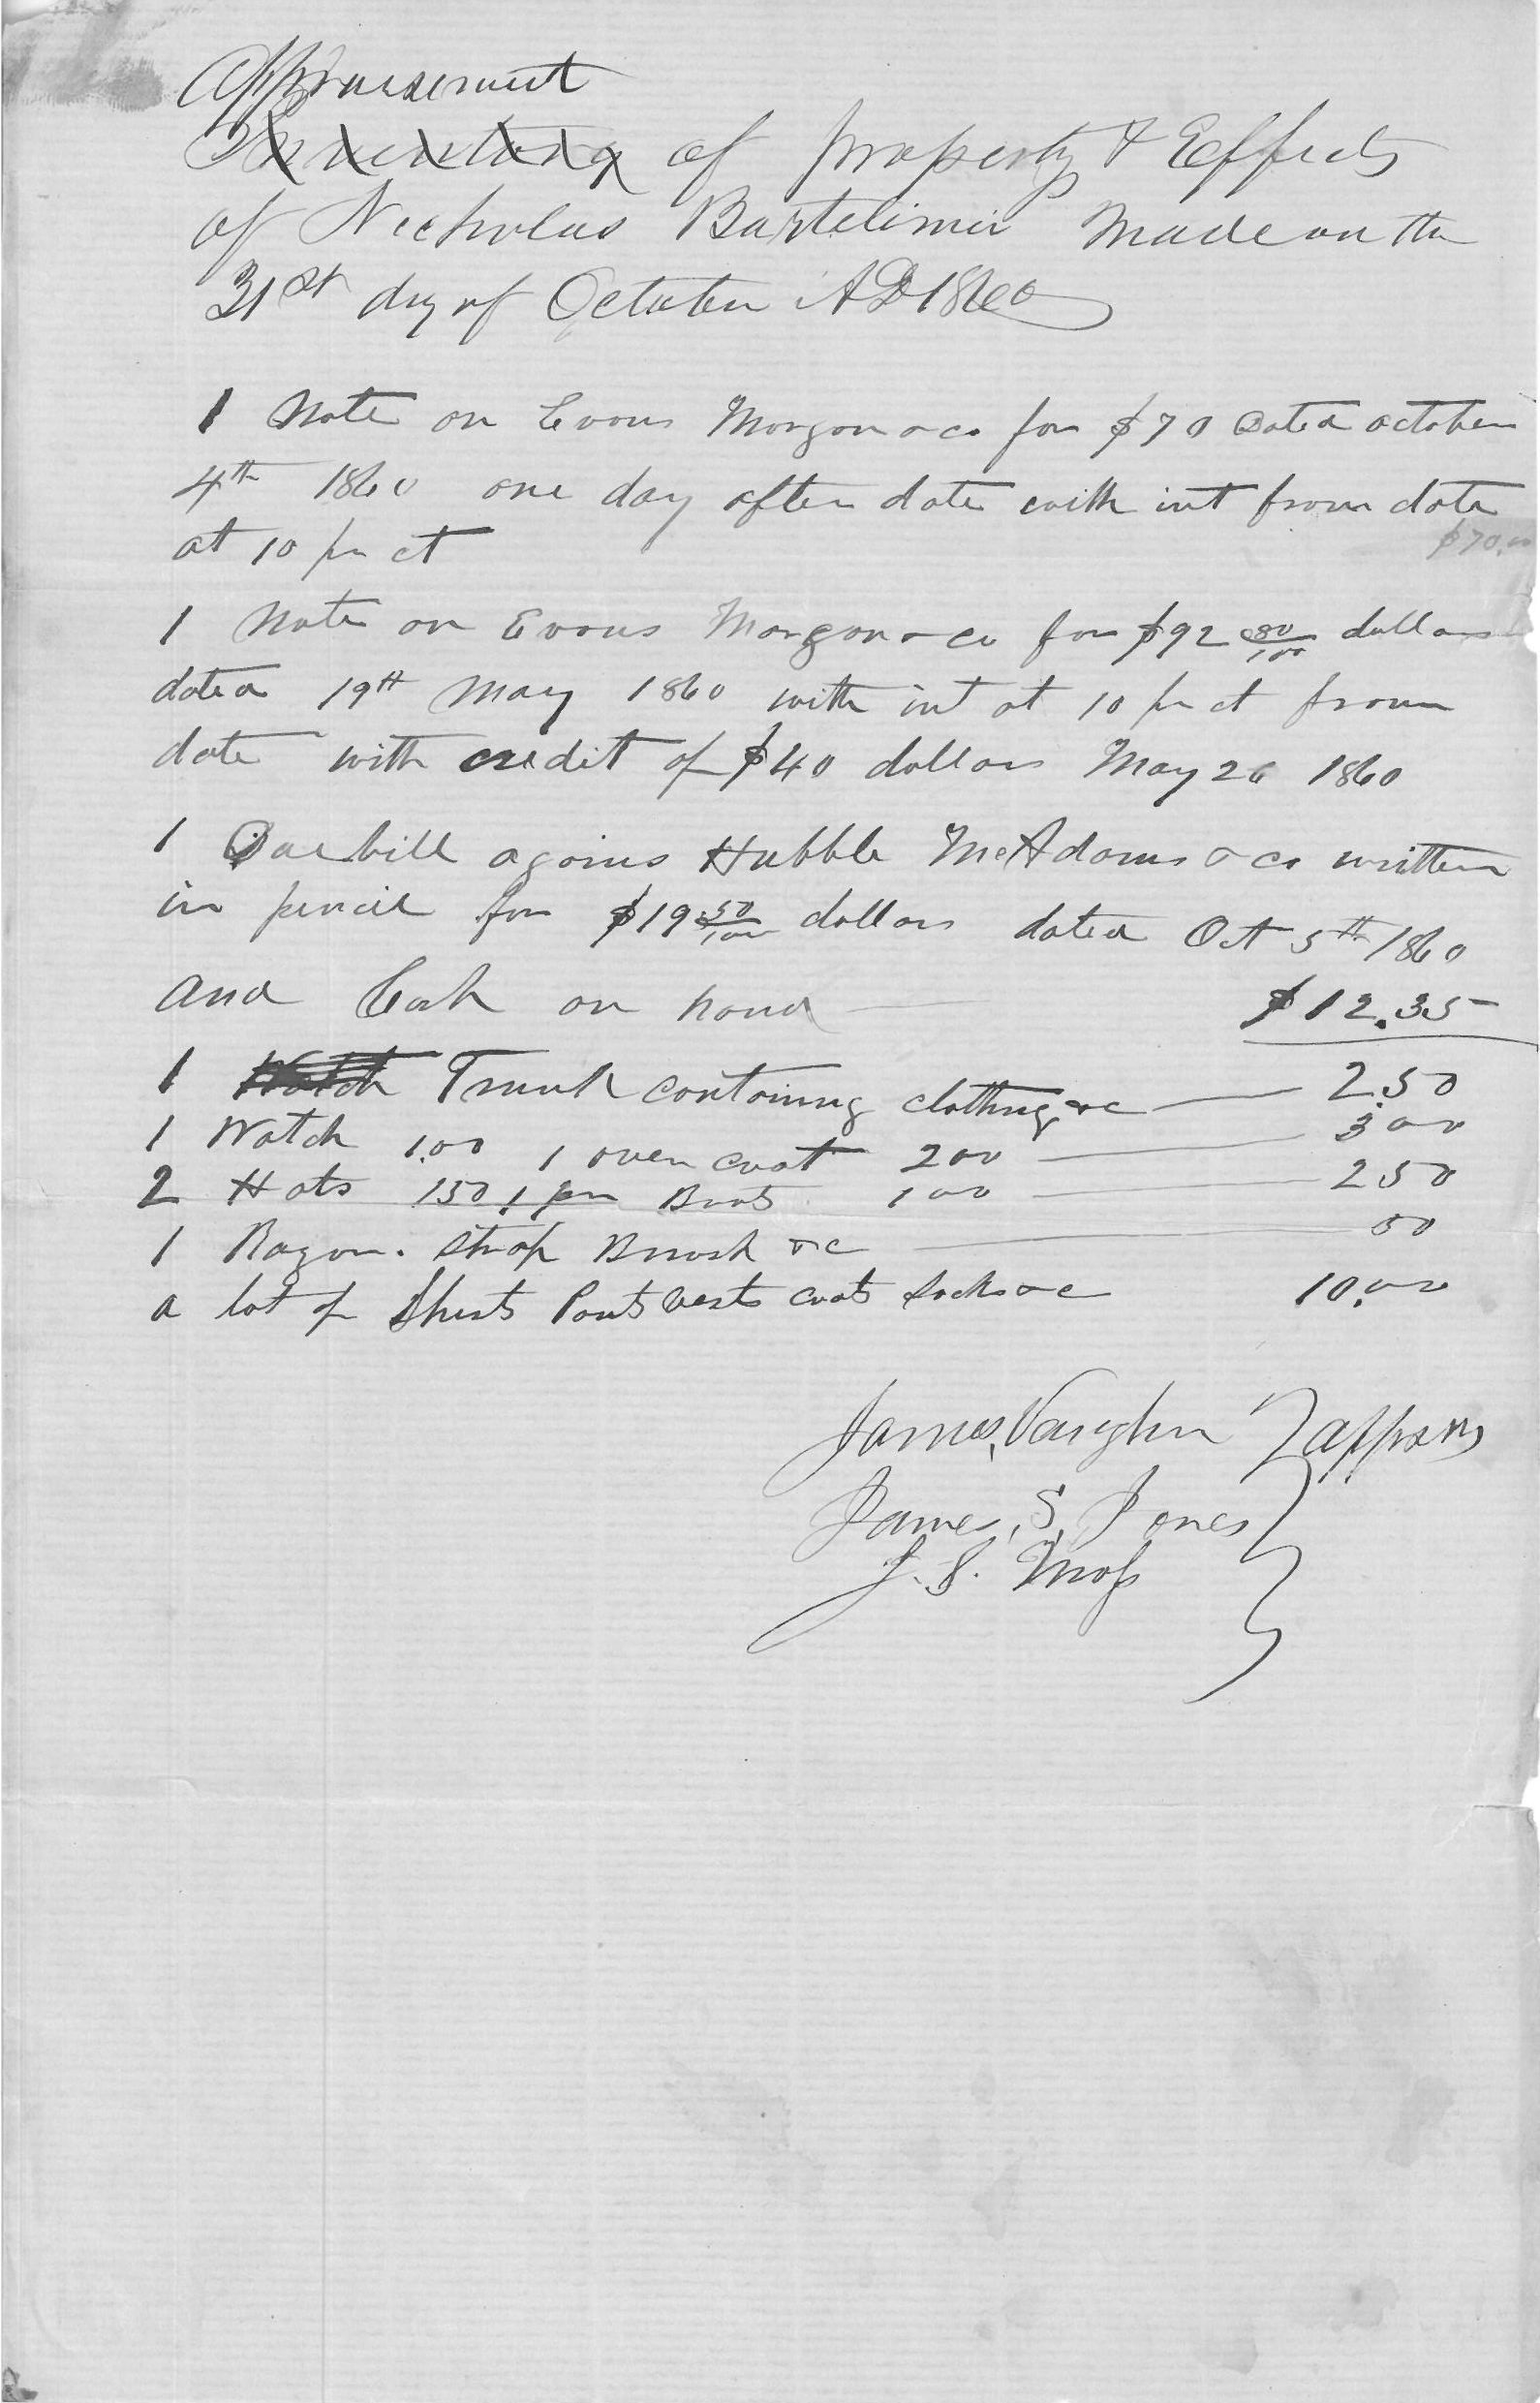 Appraisement
Inventory of property & Effects
of Nicholas Bartelimir Made on the
31st day of October AD 1860
1 Note on Evans Morgan & co for $70 Dated october
4th 1860 one day after date with int from date
at 10 pr ct $70.00
1 Note on Evans Morgan & co for $92 80/100 dollars
dated 19th May 1860 with int at 10 pr ct from
date with credit of $40 dollars May 26 1860
1 Due bill agains Hubble McAdams & co written
in pencil for $19 50/100 dollars dated Oct 5th 1860
and Cash on hand $12.35
1 Watch Trunk containing clothing &c 2.50
1 Watch 1.00 1 over coat 200 300
2 Hats 150 1 pr Boots 100 250
1 Razor. Strop Brush &c 50
a lot of Shirts Pants vests coats Socks &c 10.00
James, Vaughn apprsrs
James, S, Jones
J. S. Moss